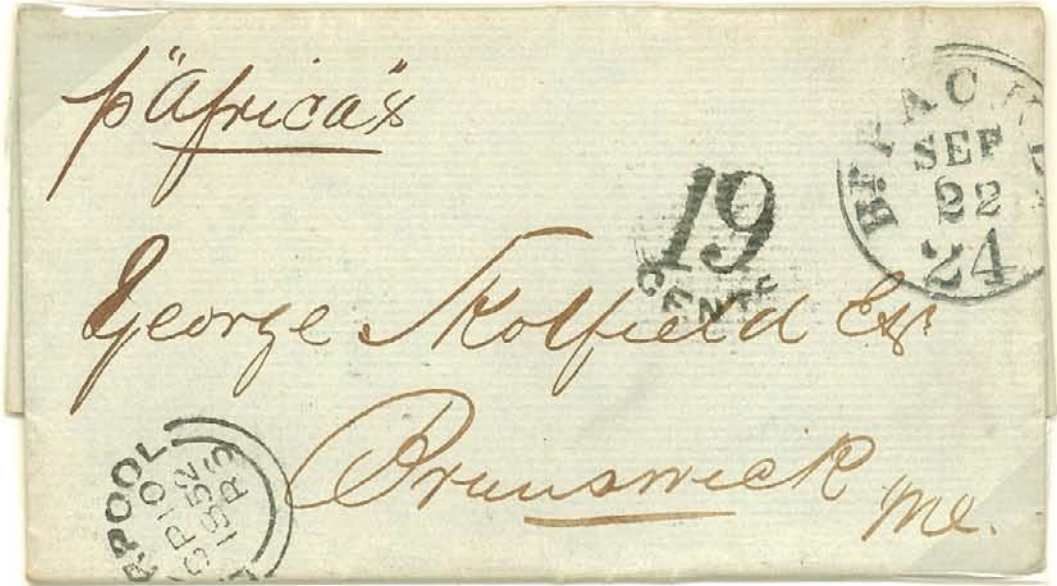 p "Africa"
Br. PACKET
SEP
22
24
19
CENTS
George Skolfield Esqr
Brunswick
Me.
RPOOL
SP10
1852